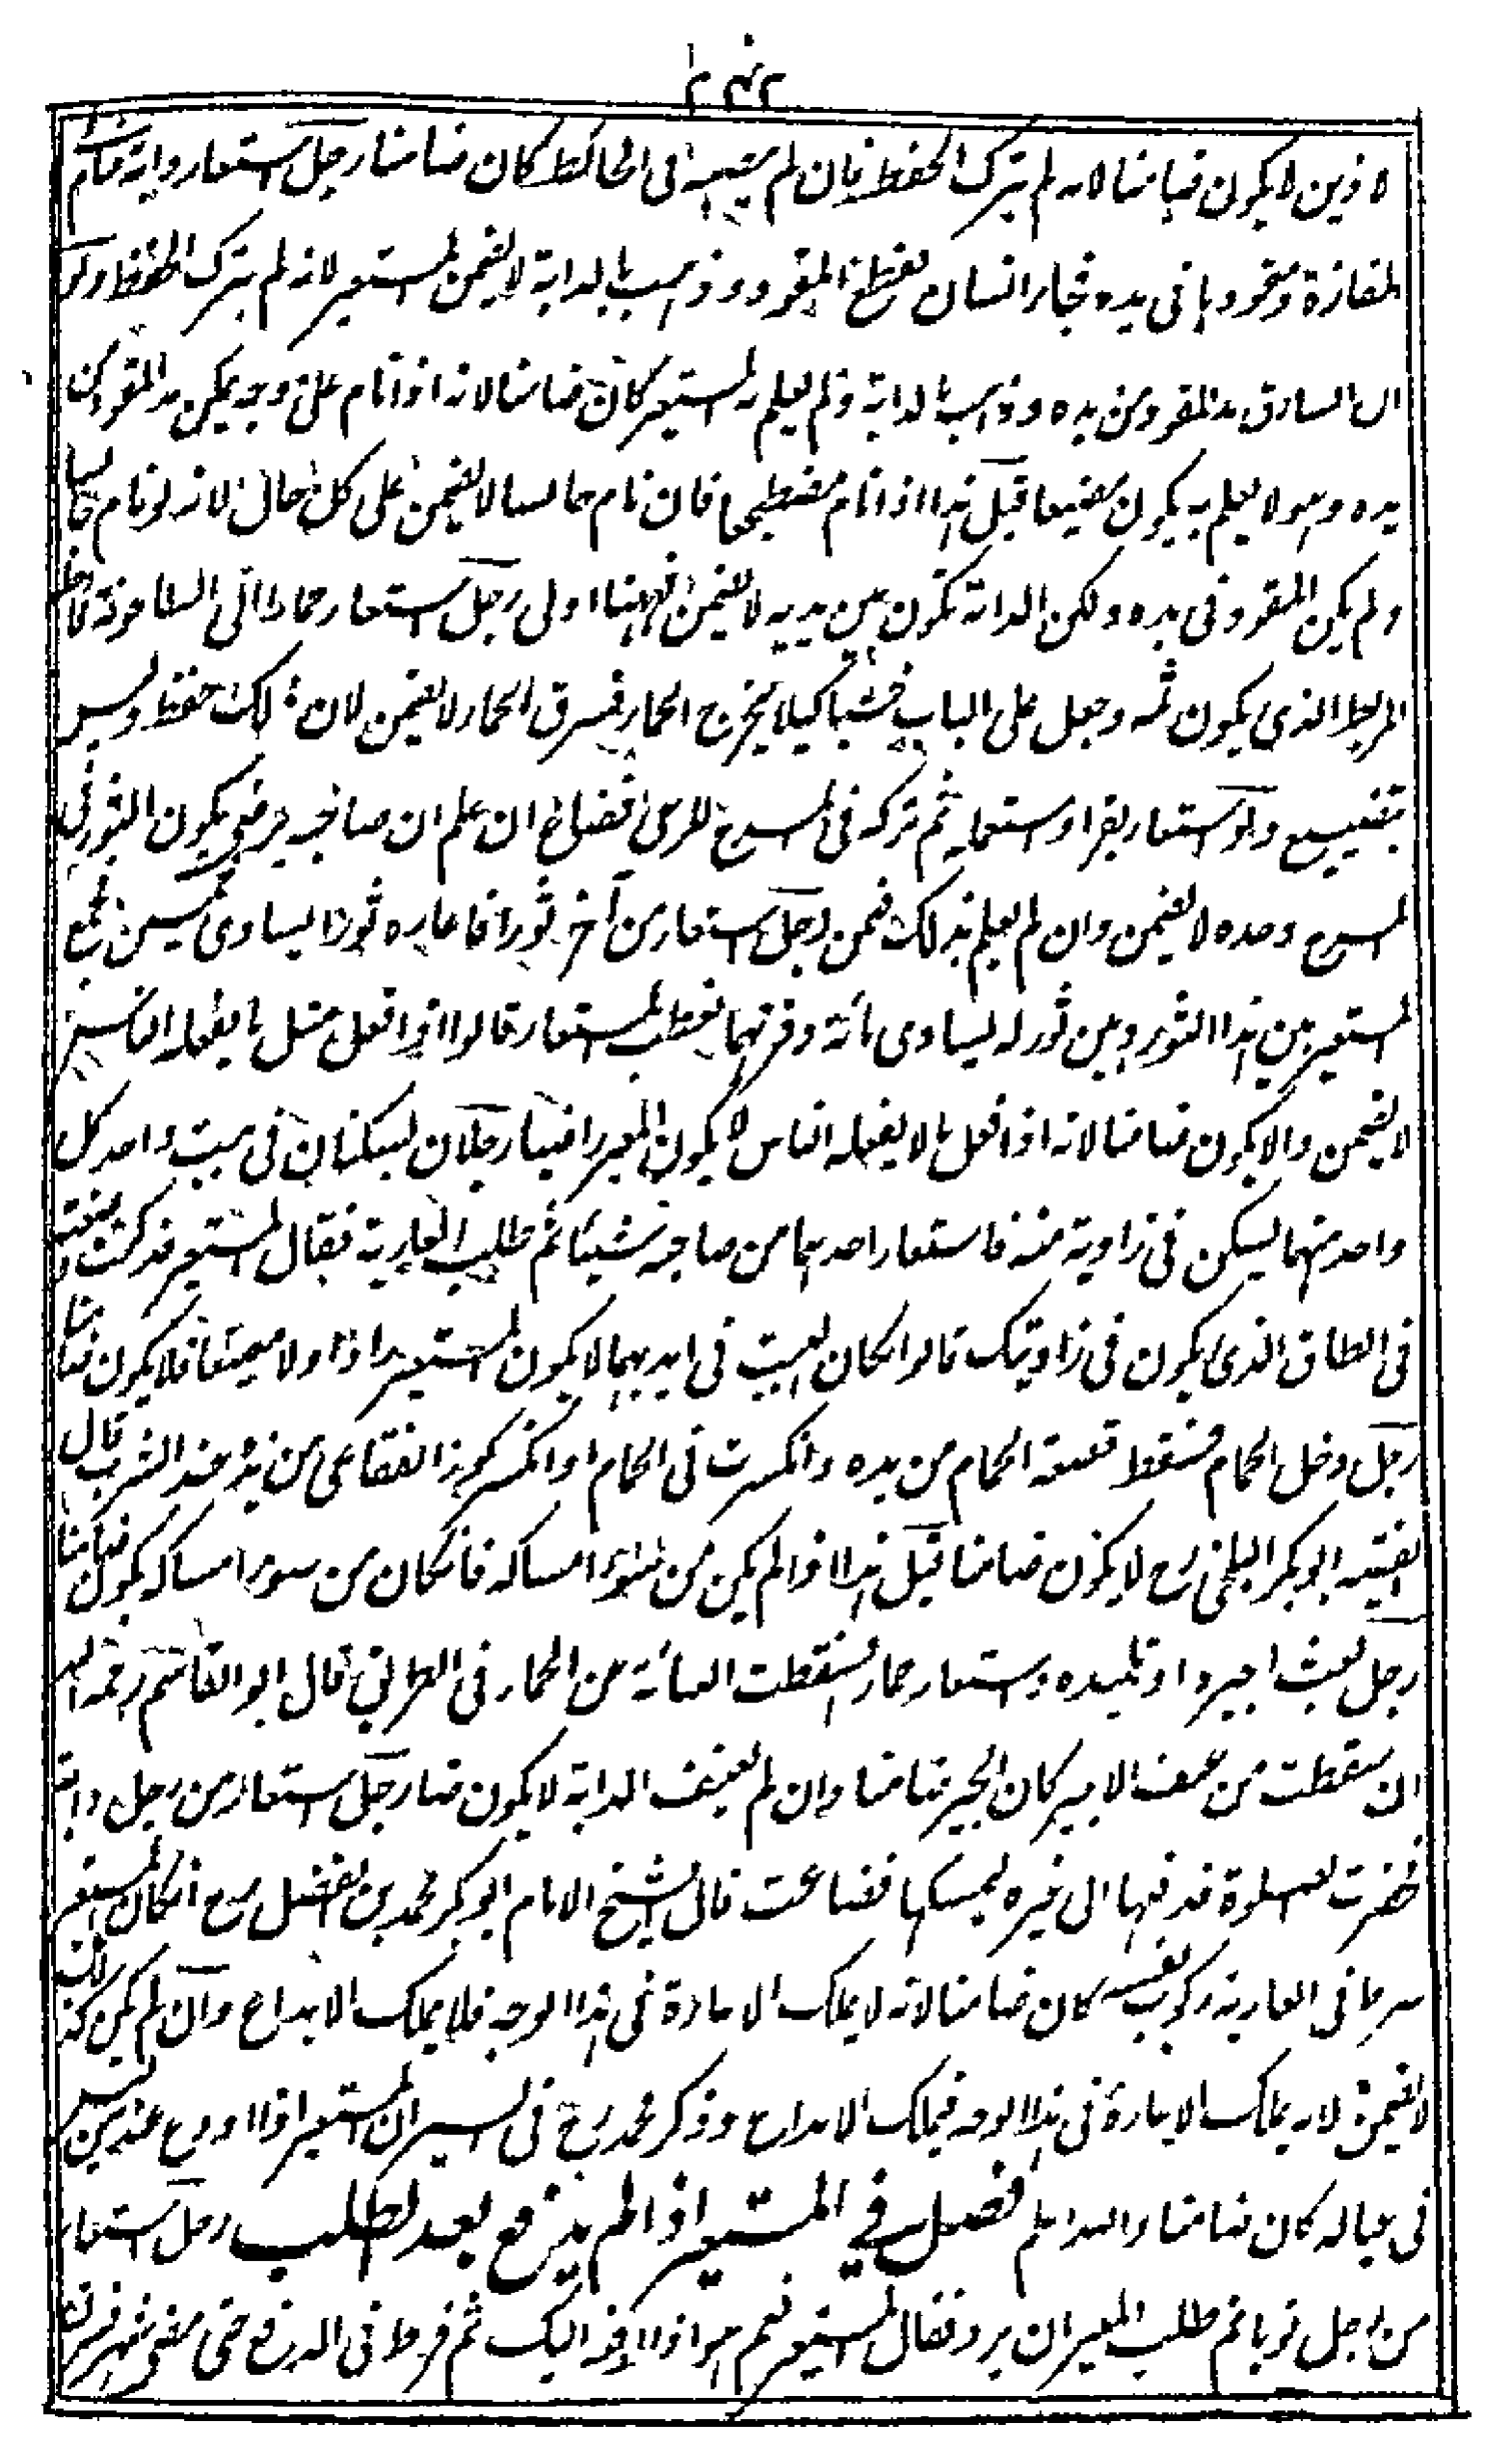 لا وذين لا يكون ضامنا لانه لم يترك الحفظ فان لم يغيبه فى الحائط كان ضامنا رجل استعار دابة فنام
المفازة ومقودها فى يده فجاء انسان فقطع المقود وذهب بالدابة لا يضمن المستعير لانه لم يترك الحفظ ولو
ان السارق مد المقود من يده وذهب بالدابة ولم يعلم به المستعير كان ضامنا لانه اذا نام على وجه يمكن مد المقود من
يده وهو لا يعلم به يكون مضيعا قيل هذا اذا نام مضطجعا فان نام جالسا لا يضمن على كل حال لانه لو نام جالسا
ولم يكن المقود فى يده ولكن الدابة تكون بين يديه لا يضمن فههنا اولى رجل استعار حمارا الى الطاحونة فادخل
المربط الذى يكون ثمه وجعل على الباب خشبا كيلا يخرج الحمار فسرق الحمار لا يضمن لان ذلك حفظ وليس
بتضييع ولو استعار بقرا واستعمله ثم تركه فى المسرح للرعى فضاع ان علم ان صاحبه يرضى بكون الثور فى
المسرح وحده لا يضمن وان لم يعلم بذلك ضمن رجل استعار من آخر ثورا فاعاره ثورا يساوى خمسين فجمع
المستعير بين هذا الثور وبين ثور له يساوى مائة وقرنهما فعطب المستعار قالوا اذا فعل مثل ما يفعله الناس
لا يضمن والا يكون ضامنا لانه اذا فعل ما لا يفعله الناس لا يكون المعير راضيا رجلان يسكنان فى بيت واحد كل
واحد منهما يسكن فى زاوية منه فاستعار احدهما من صاحبه شيئا ثم طلب العارية فقال المستعير قد كنت وضعته
فى الطاق الذى يكون فى زاويتك قالوا ان كان البيت فى ايديهما لا يكون المستعير رادا ولا مضيعا فلا يكون ضامنا
رجل دخل الحمام فسقط قصعة الحمام من يده وانكسرت فى الحمام او انكسر كوز الفقاعى من يده عند الشرب قال
الفقيه ابو بكر البلخى رح لا يكون ضامنا قيل هذا اذا لم يكن من سوء امساكه فان كان من سوء امساكه يكون ضامنا
رجل بعث اجيره او تلميذه واستعار حمارا فسقطت العباءة من الحمار فى الطريق قال ابو القاسم رحمه الله
ان سقطت من عنف الاجير كان الاجير ضامنا وان لم يعنف الدابة لا يكون ضامنا رجل استعار من رجل دابة
فحضرت الصلوة فدفعها الى غيره ليمسكها فضاعت قال الشيخ الامام ابو بكر محمد بن الفضل رح ان كان المستعير
شرط فى العارية ركوب نفسه كان ضامنا لانه لا يملك الاعارة فى هذا الوجه فلا يملك الايداع وان لم يكن كذلك
لا يضمن لانه يملك الاعارة فى هذا الوجه فيملك الايداع وذكر محمد رح فى السير ان المستعير اذا اودع عند من ليس
فى عياله كان ضامنا والله اعلم فصل في المستعير اذا لم يدفع بعد الطلب رجل استعار
من رجل ثوبا ثم طلب المعير ان يرده فقال المستعير نعم هو ذا ادفعه اليك ثم فرط فى الدفع حتى مضى شهر فسرق